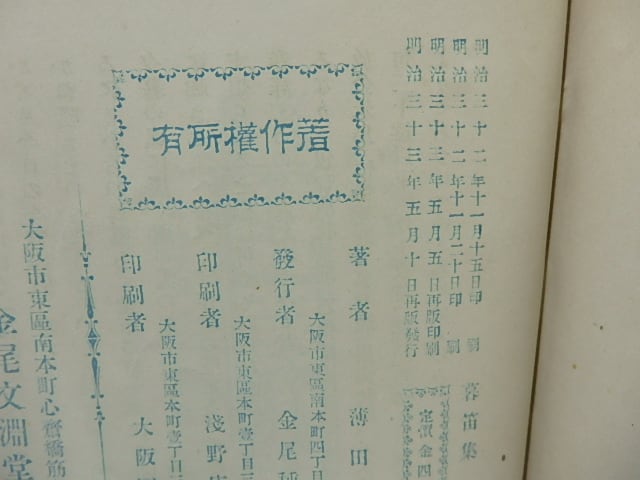 明治三十二年十一月十五日印刷
明治三十二年十一月二十日印刷
明治三十三年五月五日再版印刷
明治三十三年五月十日再版發行
暮笛集
定價金四
著作權所有
著者 薄田
大阪市東區南本町四丁目
發行者 金尾
大阪市東區本町壹丁目
印刷者 淺野
大阪市東區本町壹丁目
印刷者 大阪
大阪市東區南本町心齋橋筋
金尾文淵堂